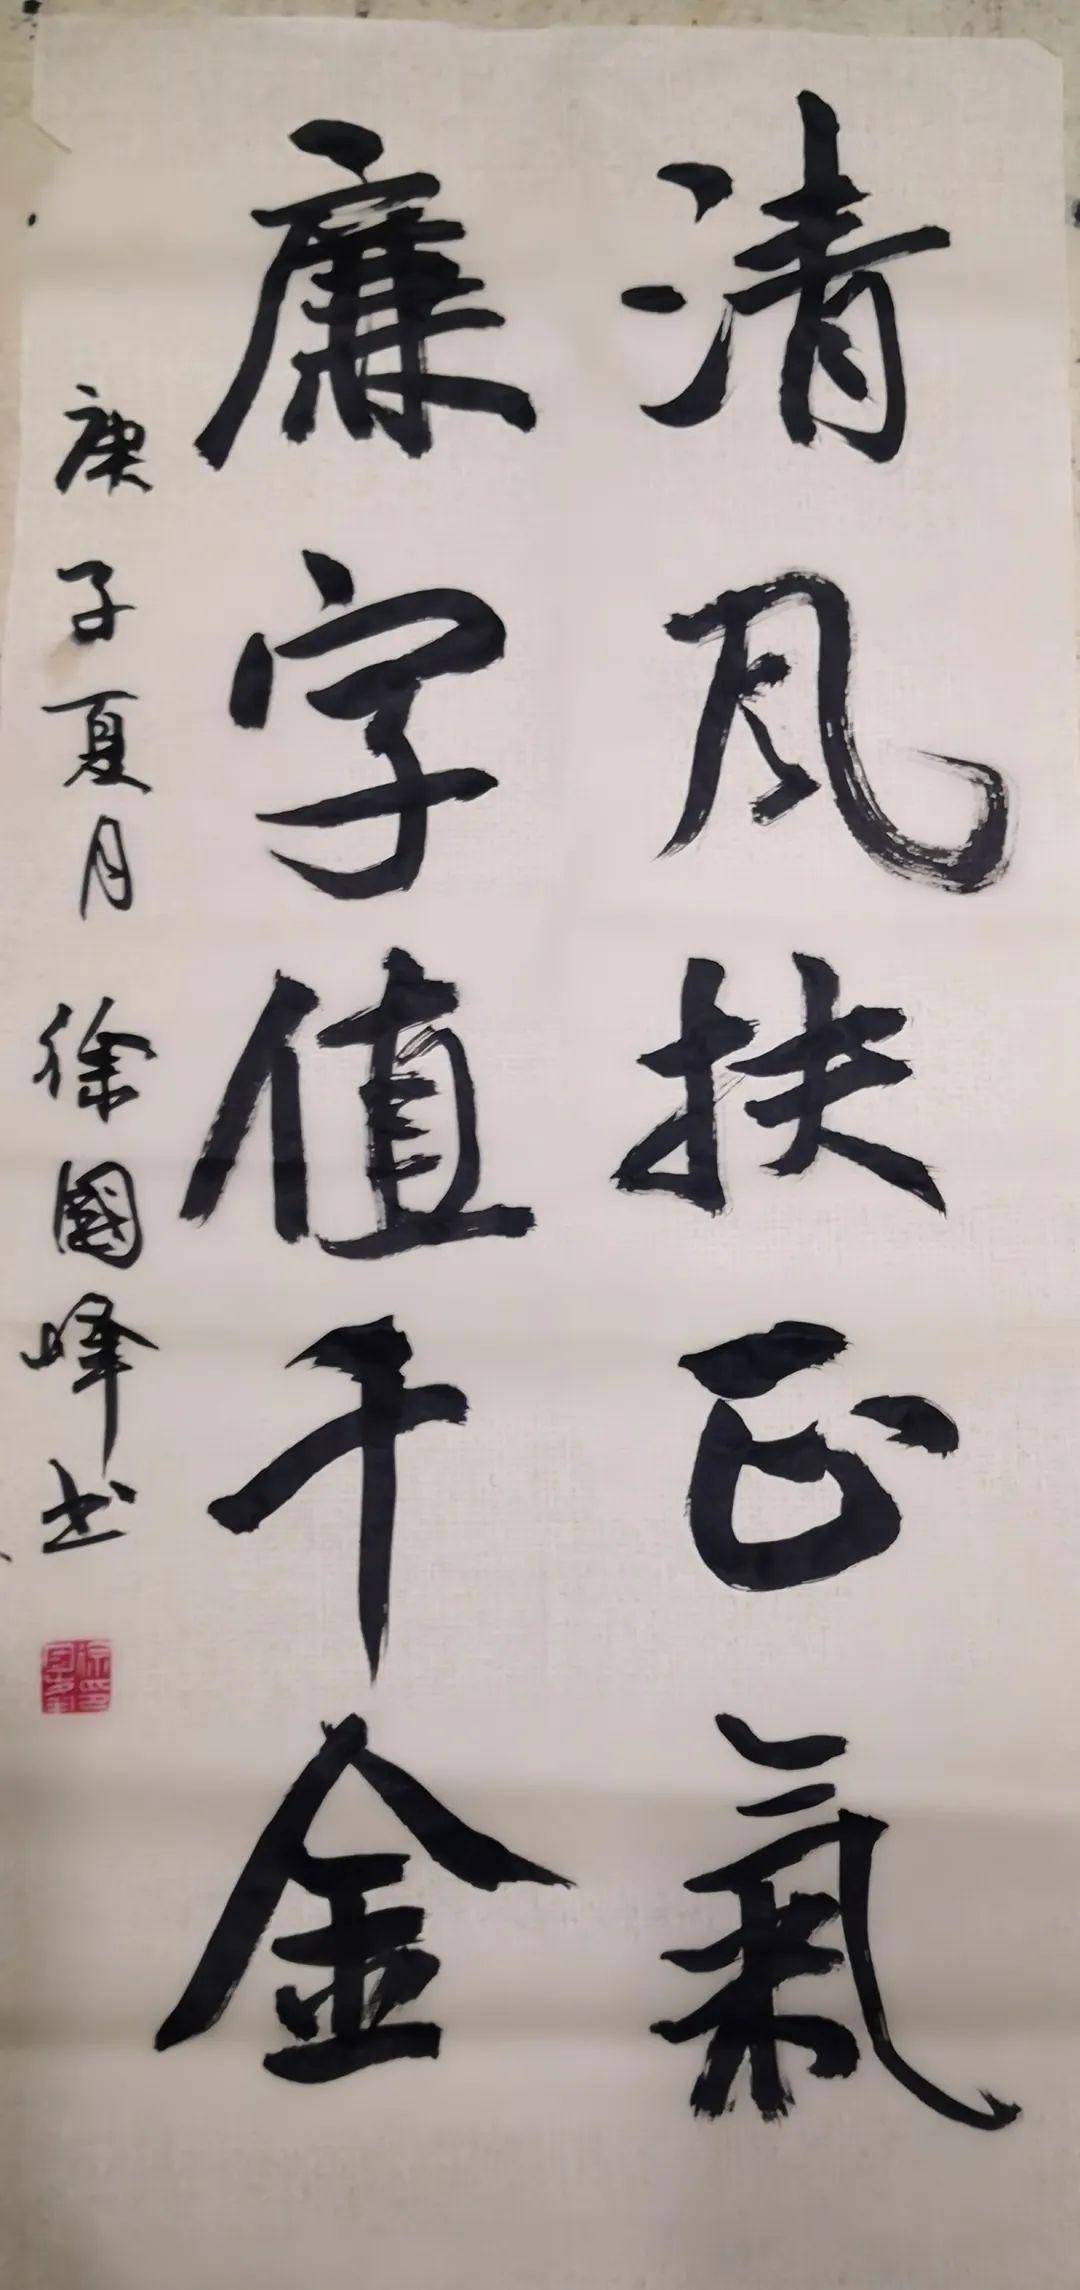 清风扶正氣
廉字值千金
庚子夏月 徐國峰书